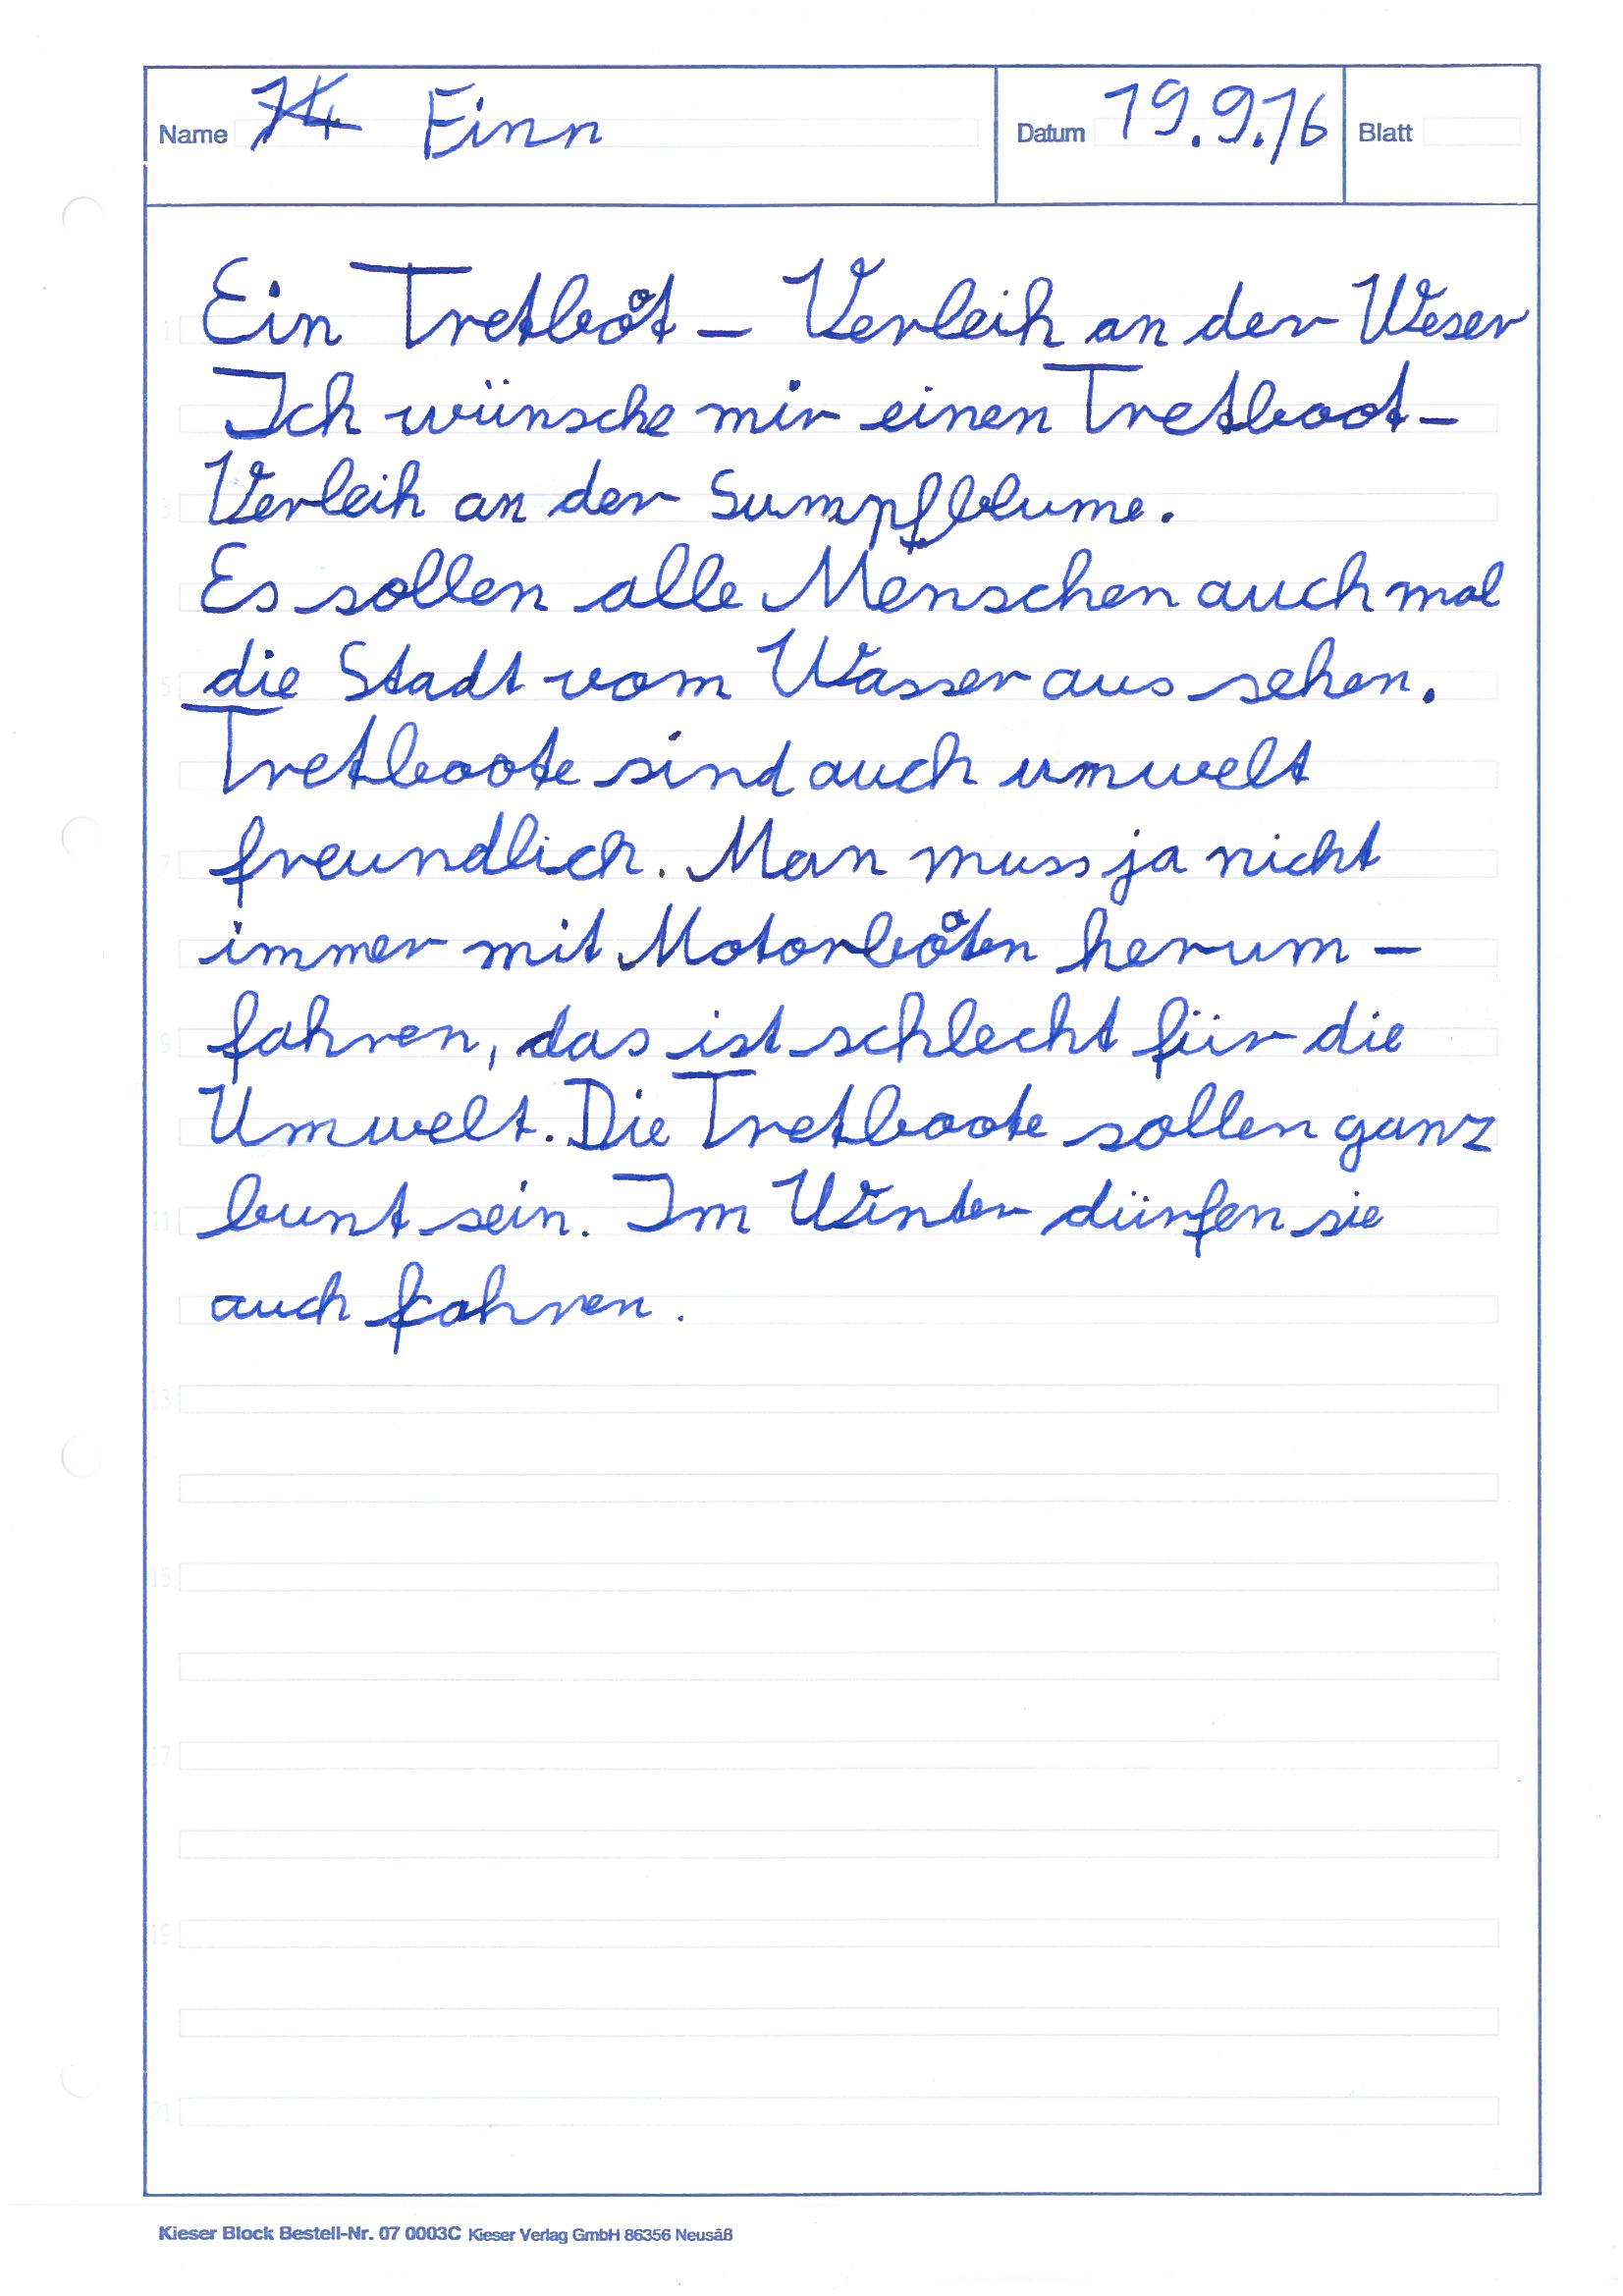 Name Finn Datum 19.9.16 Blatt
Ein Tretboot - Verleih an der Weser
Ich wünsche mir einen Tretboot-
Verleih an der Sumpfblume.
Es sollen alle Menschen auch mal
die Stadt vom Wasser aus sehen.
Tretboote sind auch umwelt
freundlich. Man muss ja nicht
immer mit Motorbooten herum-
fahren, das ist schlecht für die
Umwelt. Die Tretboote sollen ganz
bunt sein. Im Winter dürfen sie
auch fahren.
1
3
5
7
9
11
13
15
17
19
21
Kieser Block Bestell-Nr. 07 0003C Kieser Verlag GmbH 86356 Neusäß